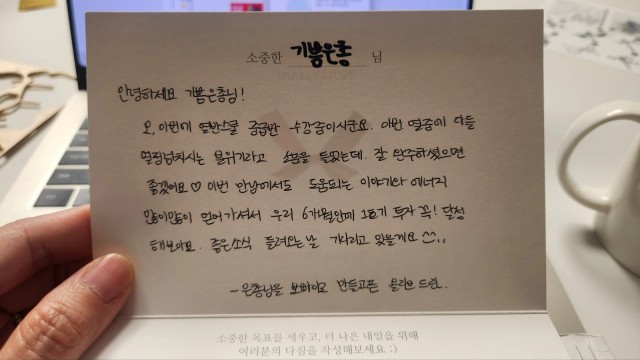 소중한 기쁨은총 님
안녕하세요 기쁨은총님!
오, 이번에 열반스쿨 중급반 수강중이시군요. 이번 열중에 다들
열정넘치시는 분위기라고 소문을 들었는데. 잘 완주하셨으면
좋겠어요♡ 이번 만남에서도 도움되는 이야기와 에너지
많이많이 얻어가셔서 우리 6개월안에 1호기 투자 꼭! 달성
해보아요. 좋은소식 들려오는 날 기다리고 있을게요 ^^,,
- 은총님을 보고 만들고픈 올리브 드림.
소중한 목표를 세우고, 더 나은 내일을 위해
여러분의 다짐을 작성해보세요 :)